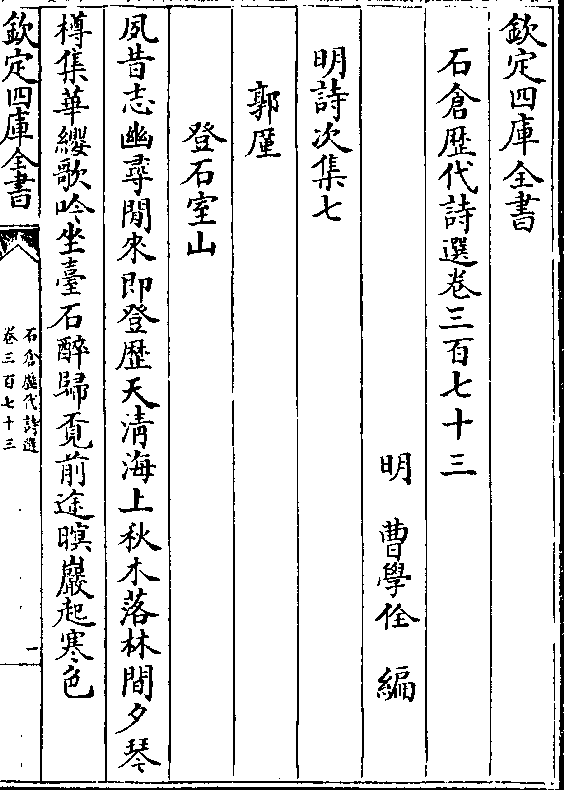 欽定四庫全書
石倉歴代詩選卷三百七十三
明 曹學佺 編
明詩次集七
郭廑
登石室山
夙昔志幽尋閒來即登歴天清海上秋木落林間夕琴
樽集華纓歌吟坐臺石醉歸覔前途暝巖起寒色
欽定四庫全書
石倉歴代詩選
卷三百七十三
一